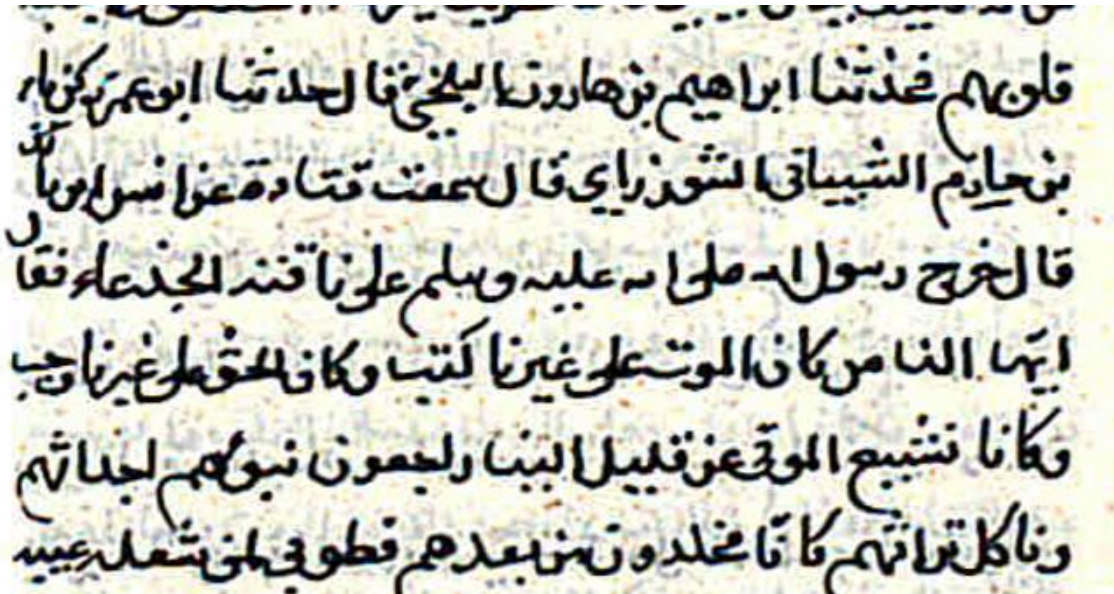 قلوبهم فحدثنا ابراهيم بن هارون البلخي قال حدثنا ابو عمر زكرياء
بن حازم الشيباني الشوذراي قال سمعت قتادة عن انس بن مالك
قال خرج رسول الله صلى الله عليه وسلم على ناقته الجدعاء فقال
ايها الناس كان الموت على غيرنا كتب وكان الحق على غيرنا وجب
وكانا نشيع الموتى عن قليل الينا راجعون نبوءهم اجداثهم
وناكل تراثهم كانا مخلدون من بعدهم فطوبى لمن شغله عيبه